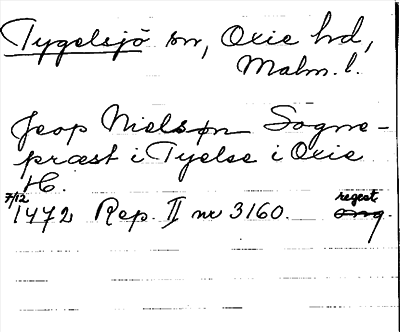 Tygelsjö sn, Oxie hd,
Malm. l.
Jeop Nielsøn Sogne-
præst i Tyelse i Oxie
H.
7/12 regest
1472 Rep. II nr 3160. orig.